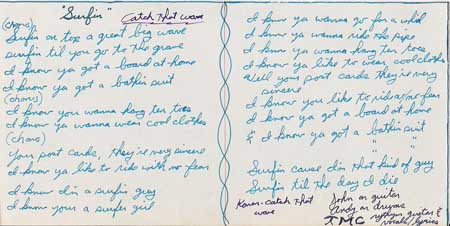 "Surfin"
Catch that wave
(chorus)
Surfin on top a great big wave
surfin til you go to the grave
I know ya got a board at home
I know ya got a bathin suit
(chorus)
I know you wanna hang ten toes
I know ya wanna wear cool clothes
(chorus)
Your post cards, they're very sincere
I know ya like to ride with no fear
I know I'm a surfin guy
I know your a surfer girl
I know ya wanna go for a
I know ya wanna ride the pipe
I know ya wanna hang ten toes
I know ya like to wear cool clothes
Well your post cards they're very
sincere
I know you like to ride w/no fear
I know ya got a board at home
& I know ya got a bathin suit
" " "
Surfin cause I'm that kind of guy
Surfin til the day I die
Karen-catch that
wave
John on guitar
Andy on drums
TMC rythym guitar &
vocals/lyrics